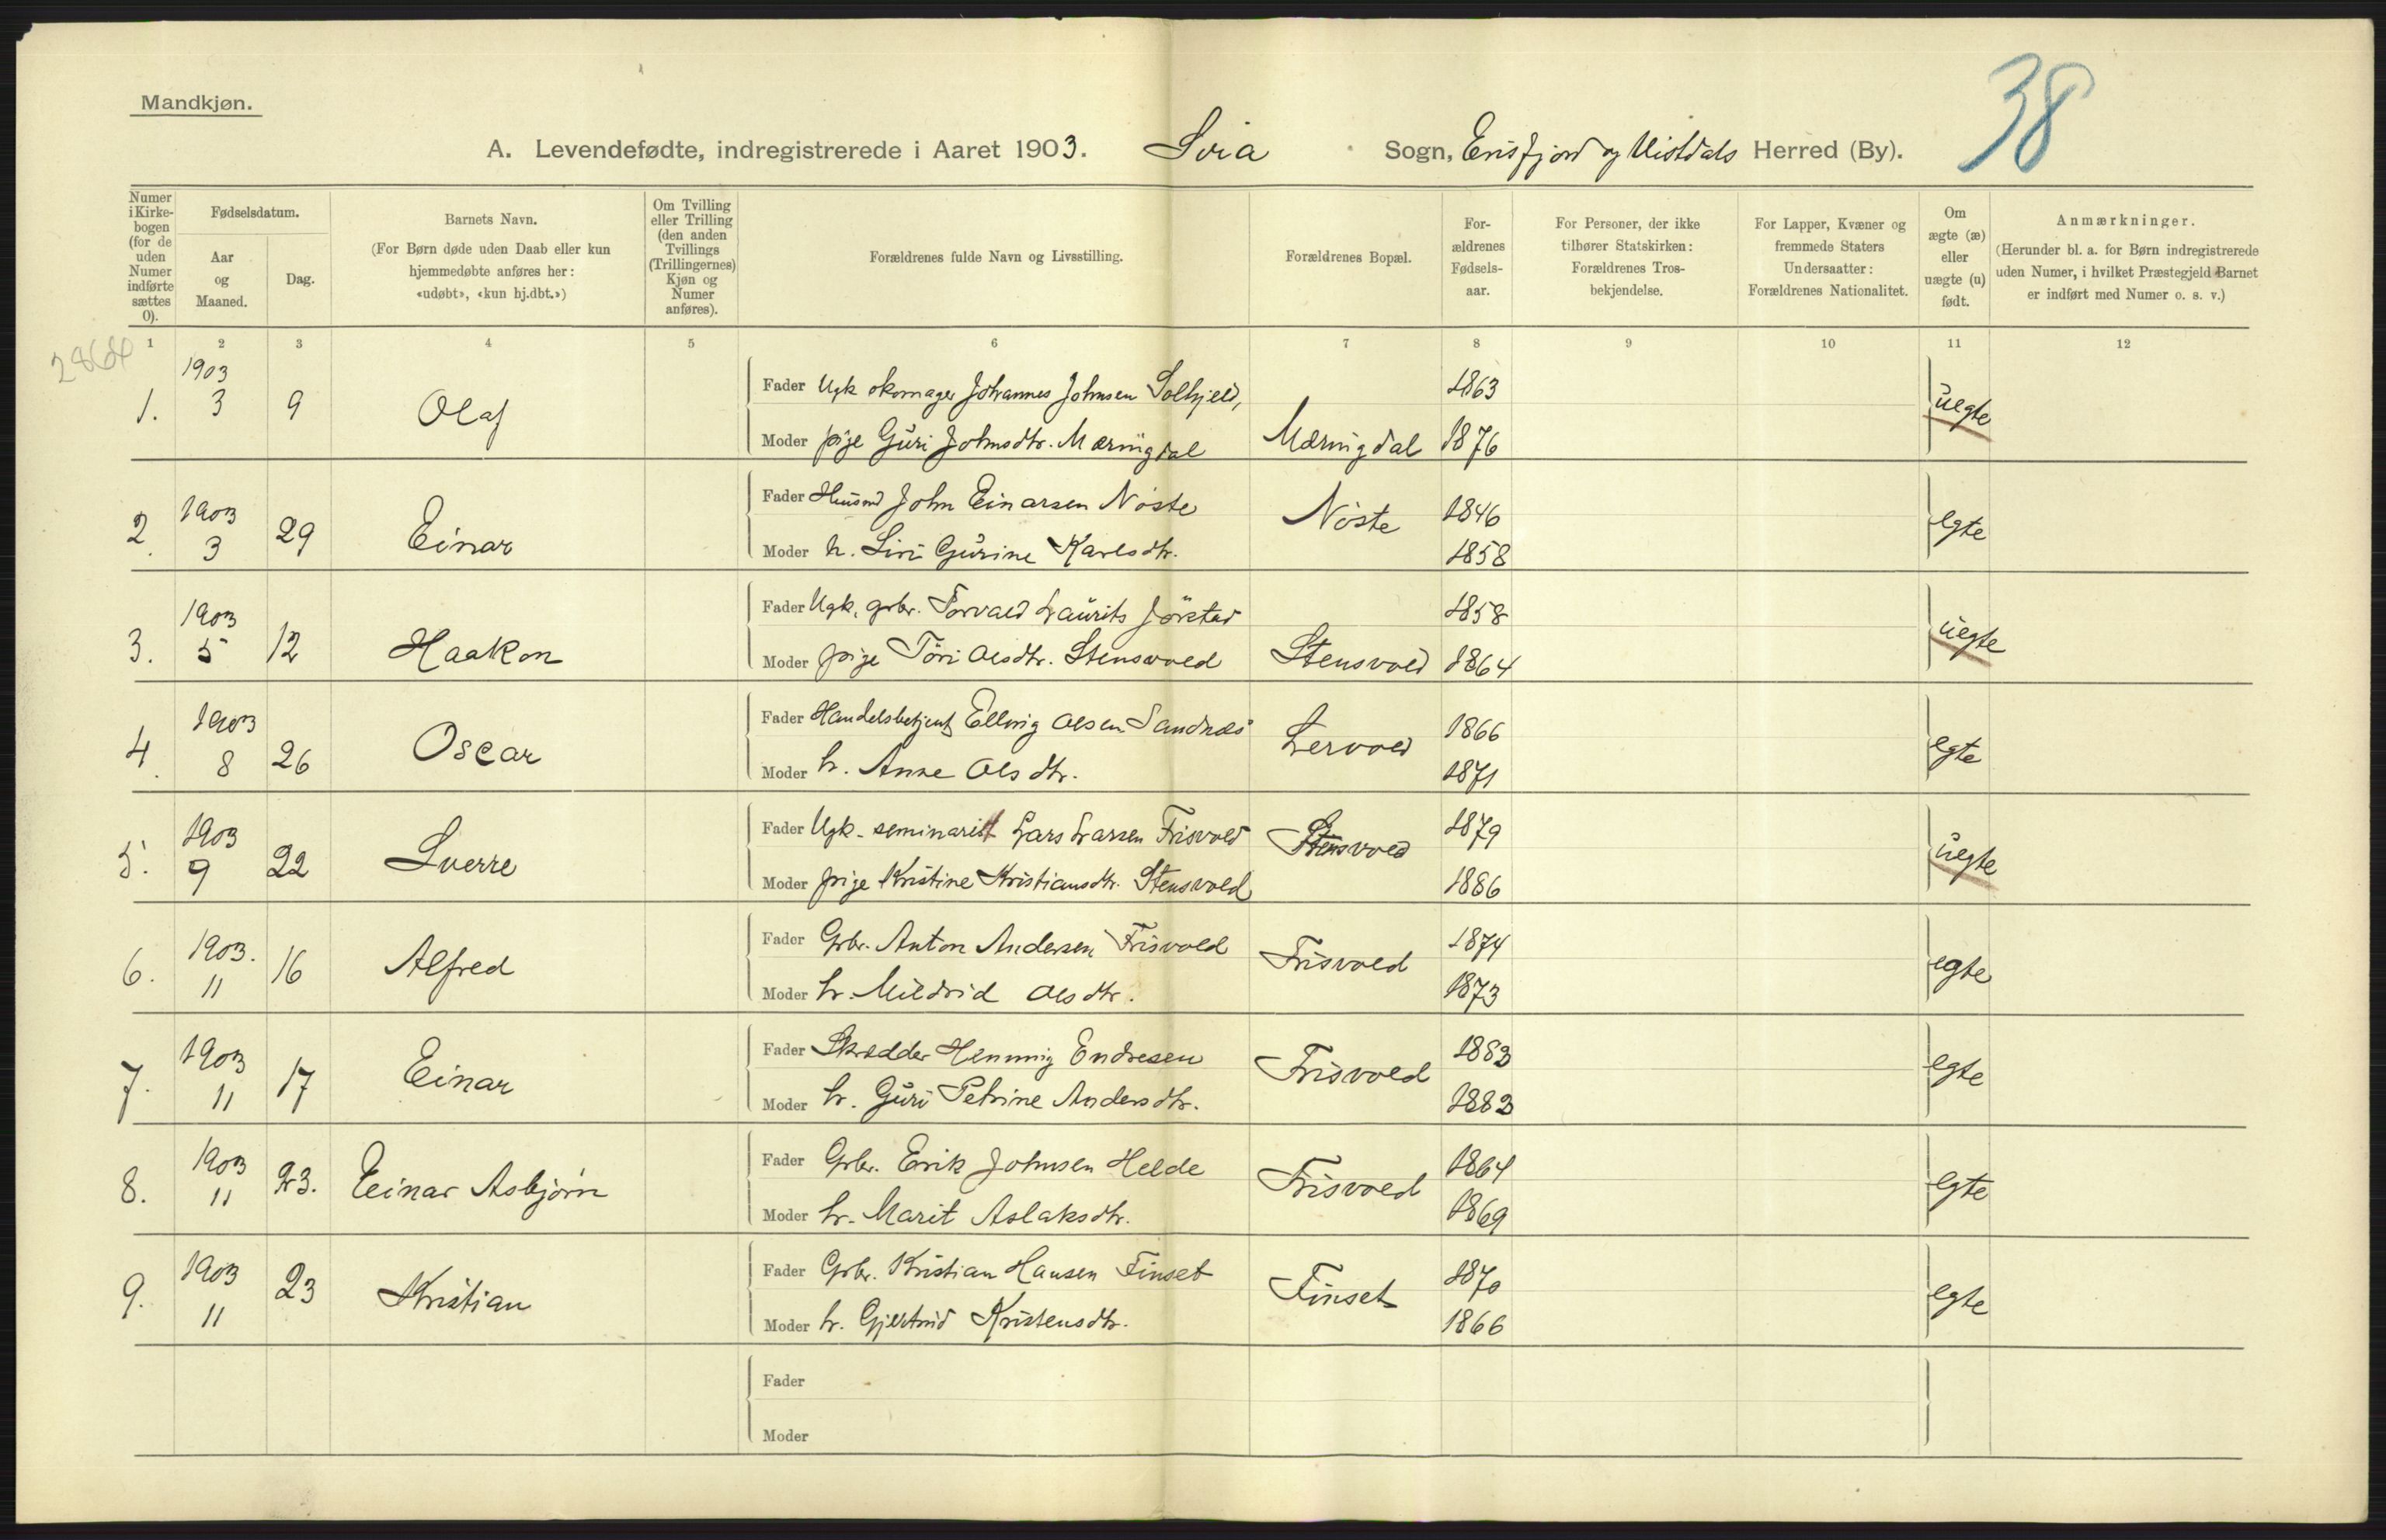 38
Mandkjøn.
A. Levendefødte, indregistrerede i Aaret 1903. Sira Sogn, Erisfjord og Vistdals Herred (By).
Numer i Kirkebogen (for de uden Numer indførte sættes 0).
Fødselsdatum.
Aar og Maaned.
Dag.
Barnets Navn.
(For Børn døde uden Daab eller kun hjemmedøbte anføres her: «udøbt», «kun hj.dbt.»)
Om Tvilling eller Trilling (den anden Tvillings (Trillingernes) Kjøn og Numer anføres).
Forældrenes fulde Navn og Livsstilling.
Forældrenes Bopæl.
Forældrenes Fødselsaar.
For Personer, der ikke tilhører Statskirken: Forældrenes Trosbekjendelse.
For Lapper, Kvæner og fremmede Staters Undersaatter: Forældrenes Nationalitet.
Om ægte (æ) eller uægte (u) født.
Anmærkninger.
(Herunder bl. a. for Børn indregistrerede uden Numer, i hvilket Præstegjeld Barnet er indført med Numer o. s. v.)
1 2 3 4 5 6 7 8 9 10 11 12
1. 1903 3 9 Olaf
Fader Ugk skomager Johannes Johnsen Solhjeld, 1863
Moder pige Guri Johnsdtr. Mæringdal Mæringdal 1876
uegte
2. 1903 3 29 Einar
Fader Husmd John Einarsen Nöste Nöste 1846
Moder h. Siri Gurine Karlsdtr. 1858
egte
3. 1903 5 12 Haakon
Fader Ugk. grbr. Torvald Laurits Jörstad 1858
Moder pige Töri Olsdtr. Stensvold Stensvold 1864
uegte
4. 1903 8 26 Oscar
Fader Handelsbetjent Elling Olsen Sandnes Lervold 1866
Moder h. Anne Olsdtr. 1871
egte
5. 1903 9 22 Sverre
Fader Ugk. seminarist Lars Larsen Frisvold Stensvold 1879
Moder pige Kristine Kristiansdtr. Stensvold 1886
uegte
6. 1903. 11 16 Alfred
Fader Grbr. Anton Andersen Frisvold Frisvold 1874
Moder h. Mildrid Olsdtr. 1873
egte
7. 1903 11 17 Einar
Fader Skrædder Henning Endresen Frisvold 1883
Moder h. Guri Petrine Andersdtr. 1883
egte
8. 1903 11 23. Einar Asbjörn
Fader Grbr. Erik Johnsen Helde Frisvold 1864
Moder h. Marit Aslaksdtr. 1869
egte
9. 1903 11 23 Kristian
Fader Grbr. Kristian Hansen Finset Finset 1870
Moder h. Gjertrud Kristensdtr. 1866
egte
Fader
Moder